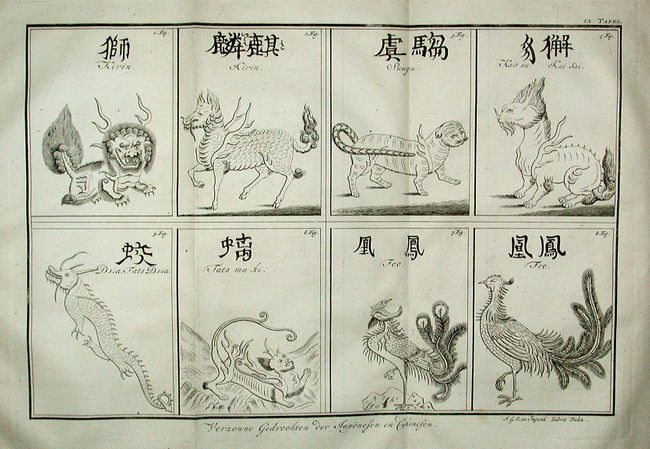 IX. TAFEL.
1. Fig.
獅
Kirin.
2. Fig.
麟麒
Kirin.
3. Fig.
虞騶
Suugu.
4. Fig.
豸獬
Kai Sai.
5. Fig.
蛟
Dsia, Tats Dsia.
6. Fig.
螭
Tats ma ki.
7. Fig.
凰鳳
Foo.
8. Fig.
凰鳳
Foo.
Verzonne Gedrochten der Japonesen en Chinesen.